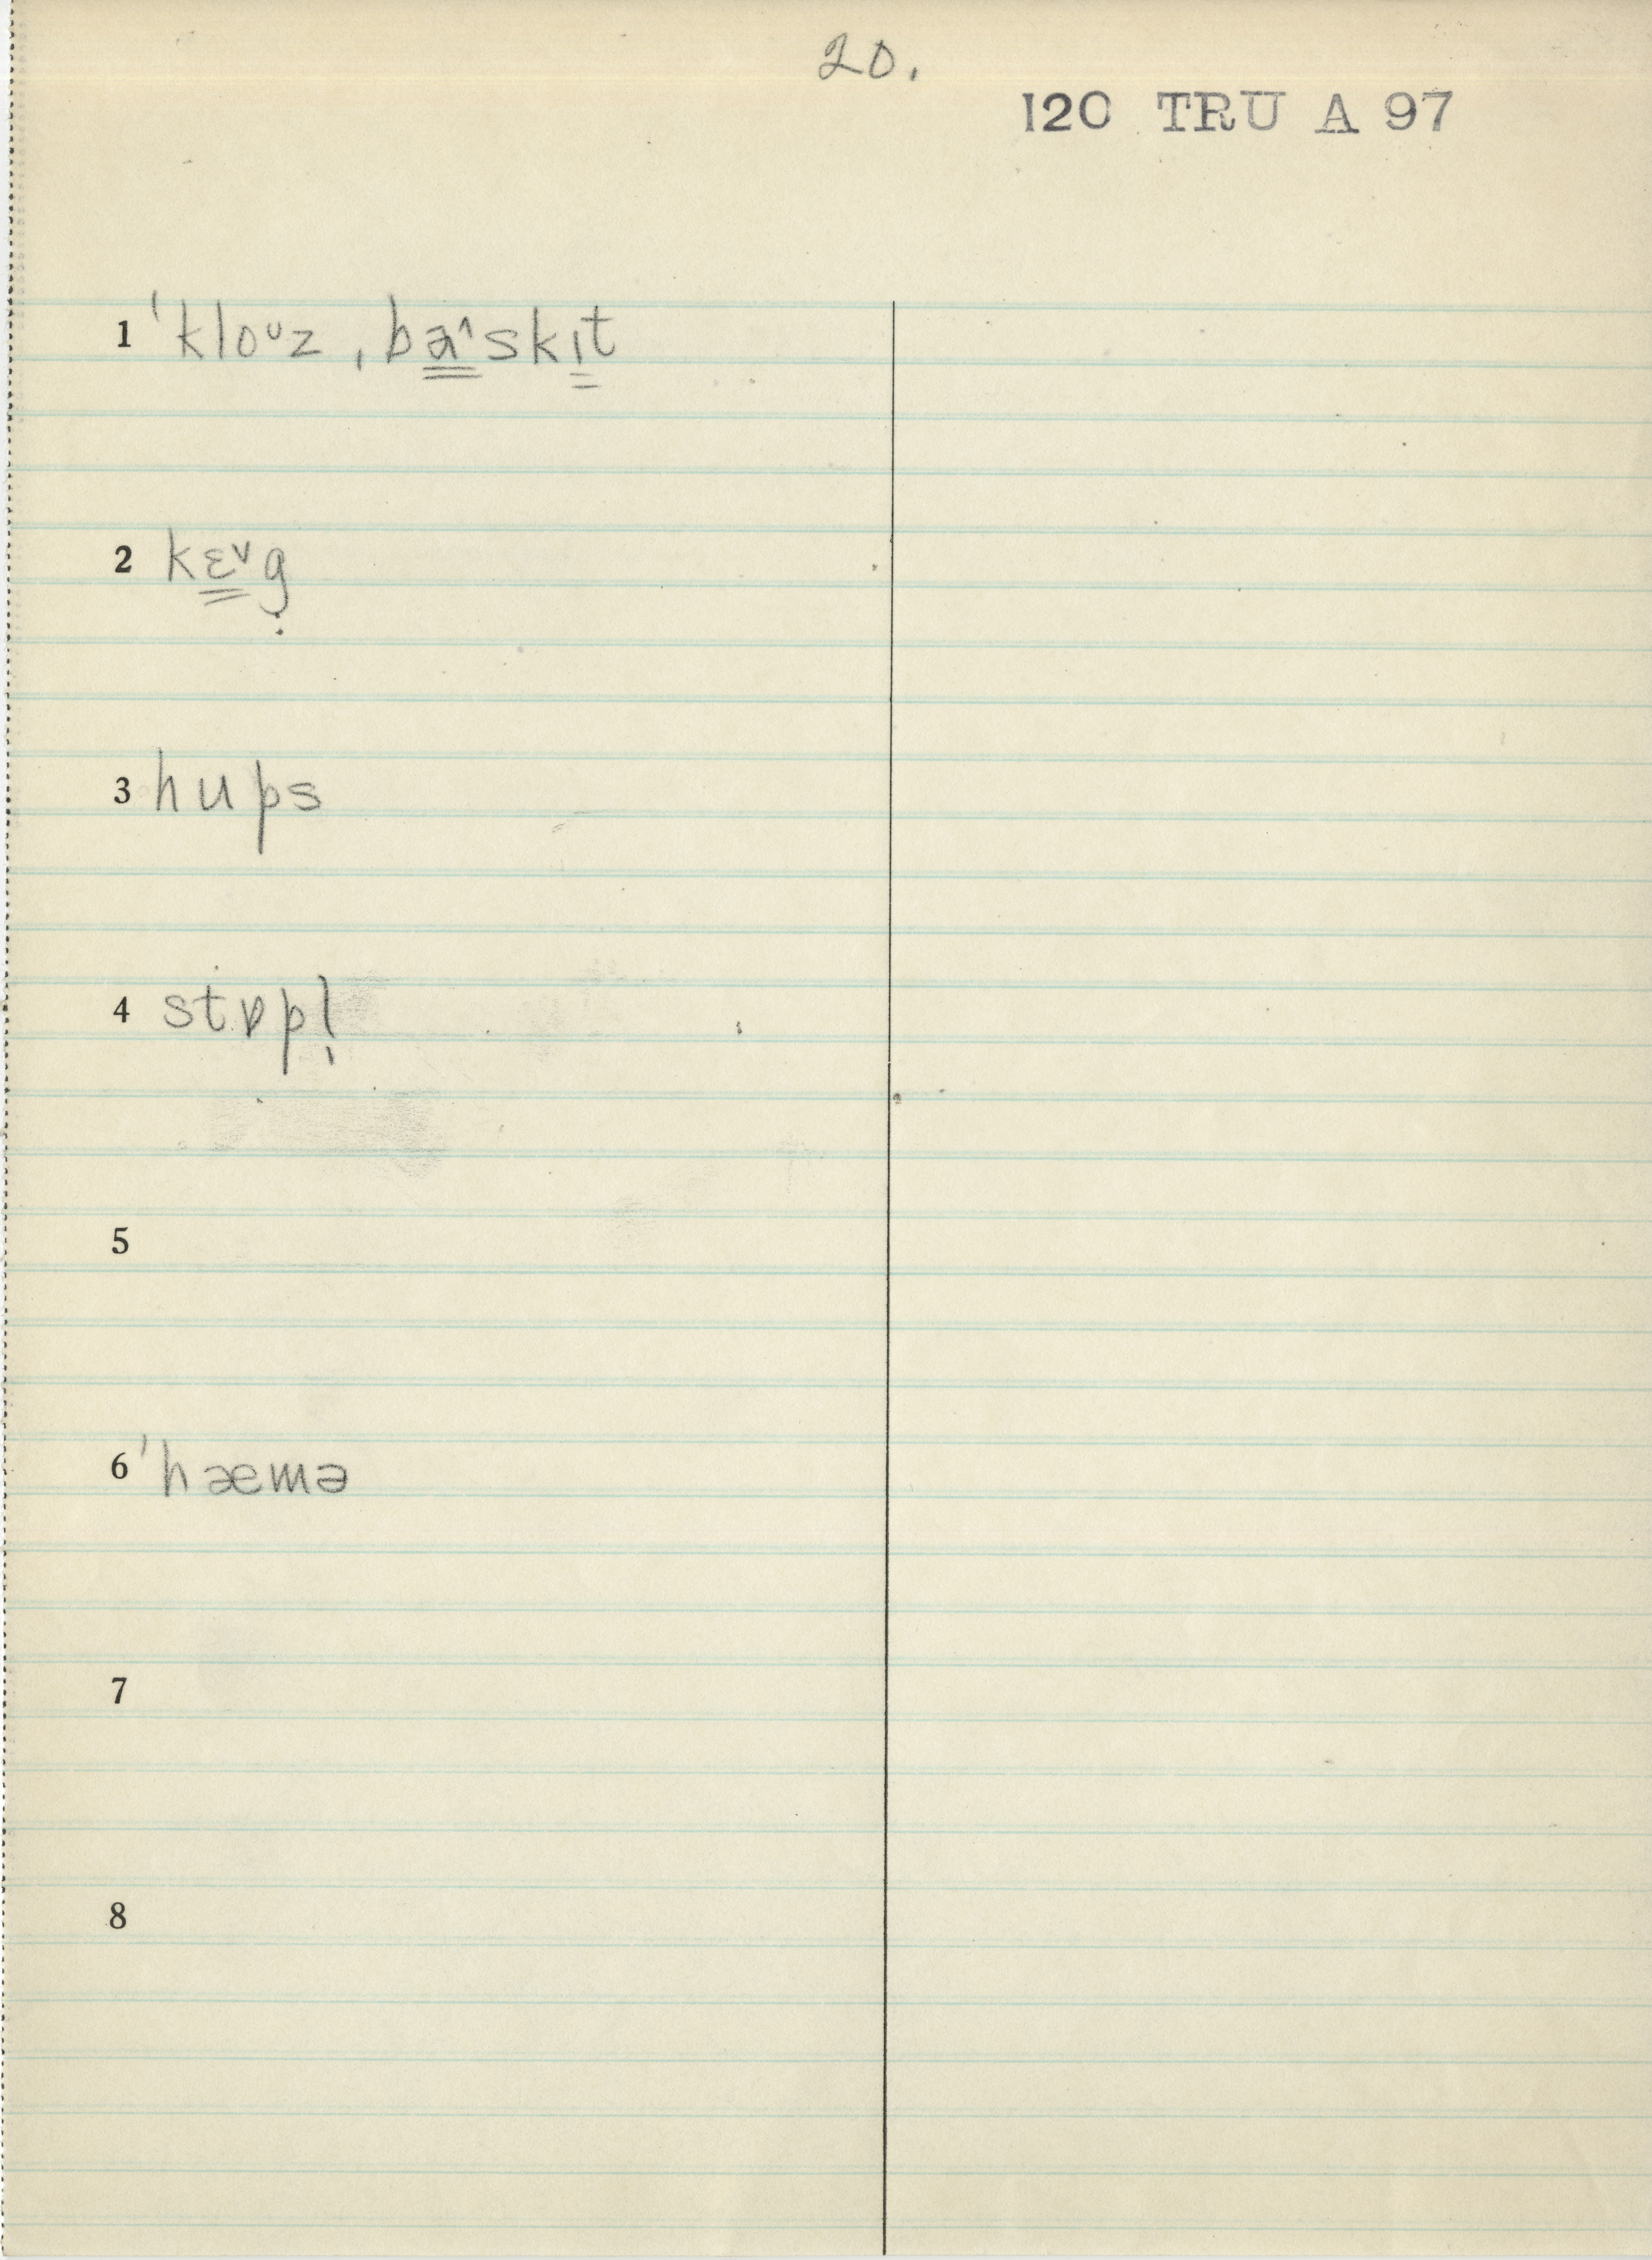 20.
120 TRU A 97
1 ˈkloᶷz ˌba̳ˆskɪ̳t
2 kɛ̳ˇg̣
3 hups
4 stɒpl̩
5
6 ˈhæmə
7
8